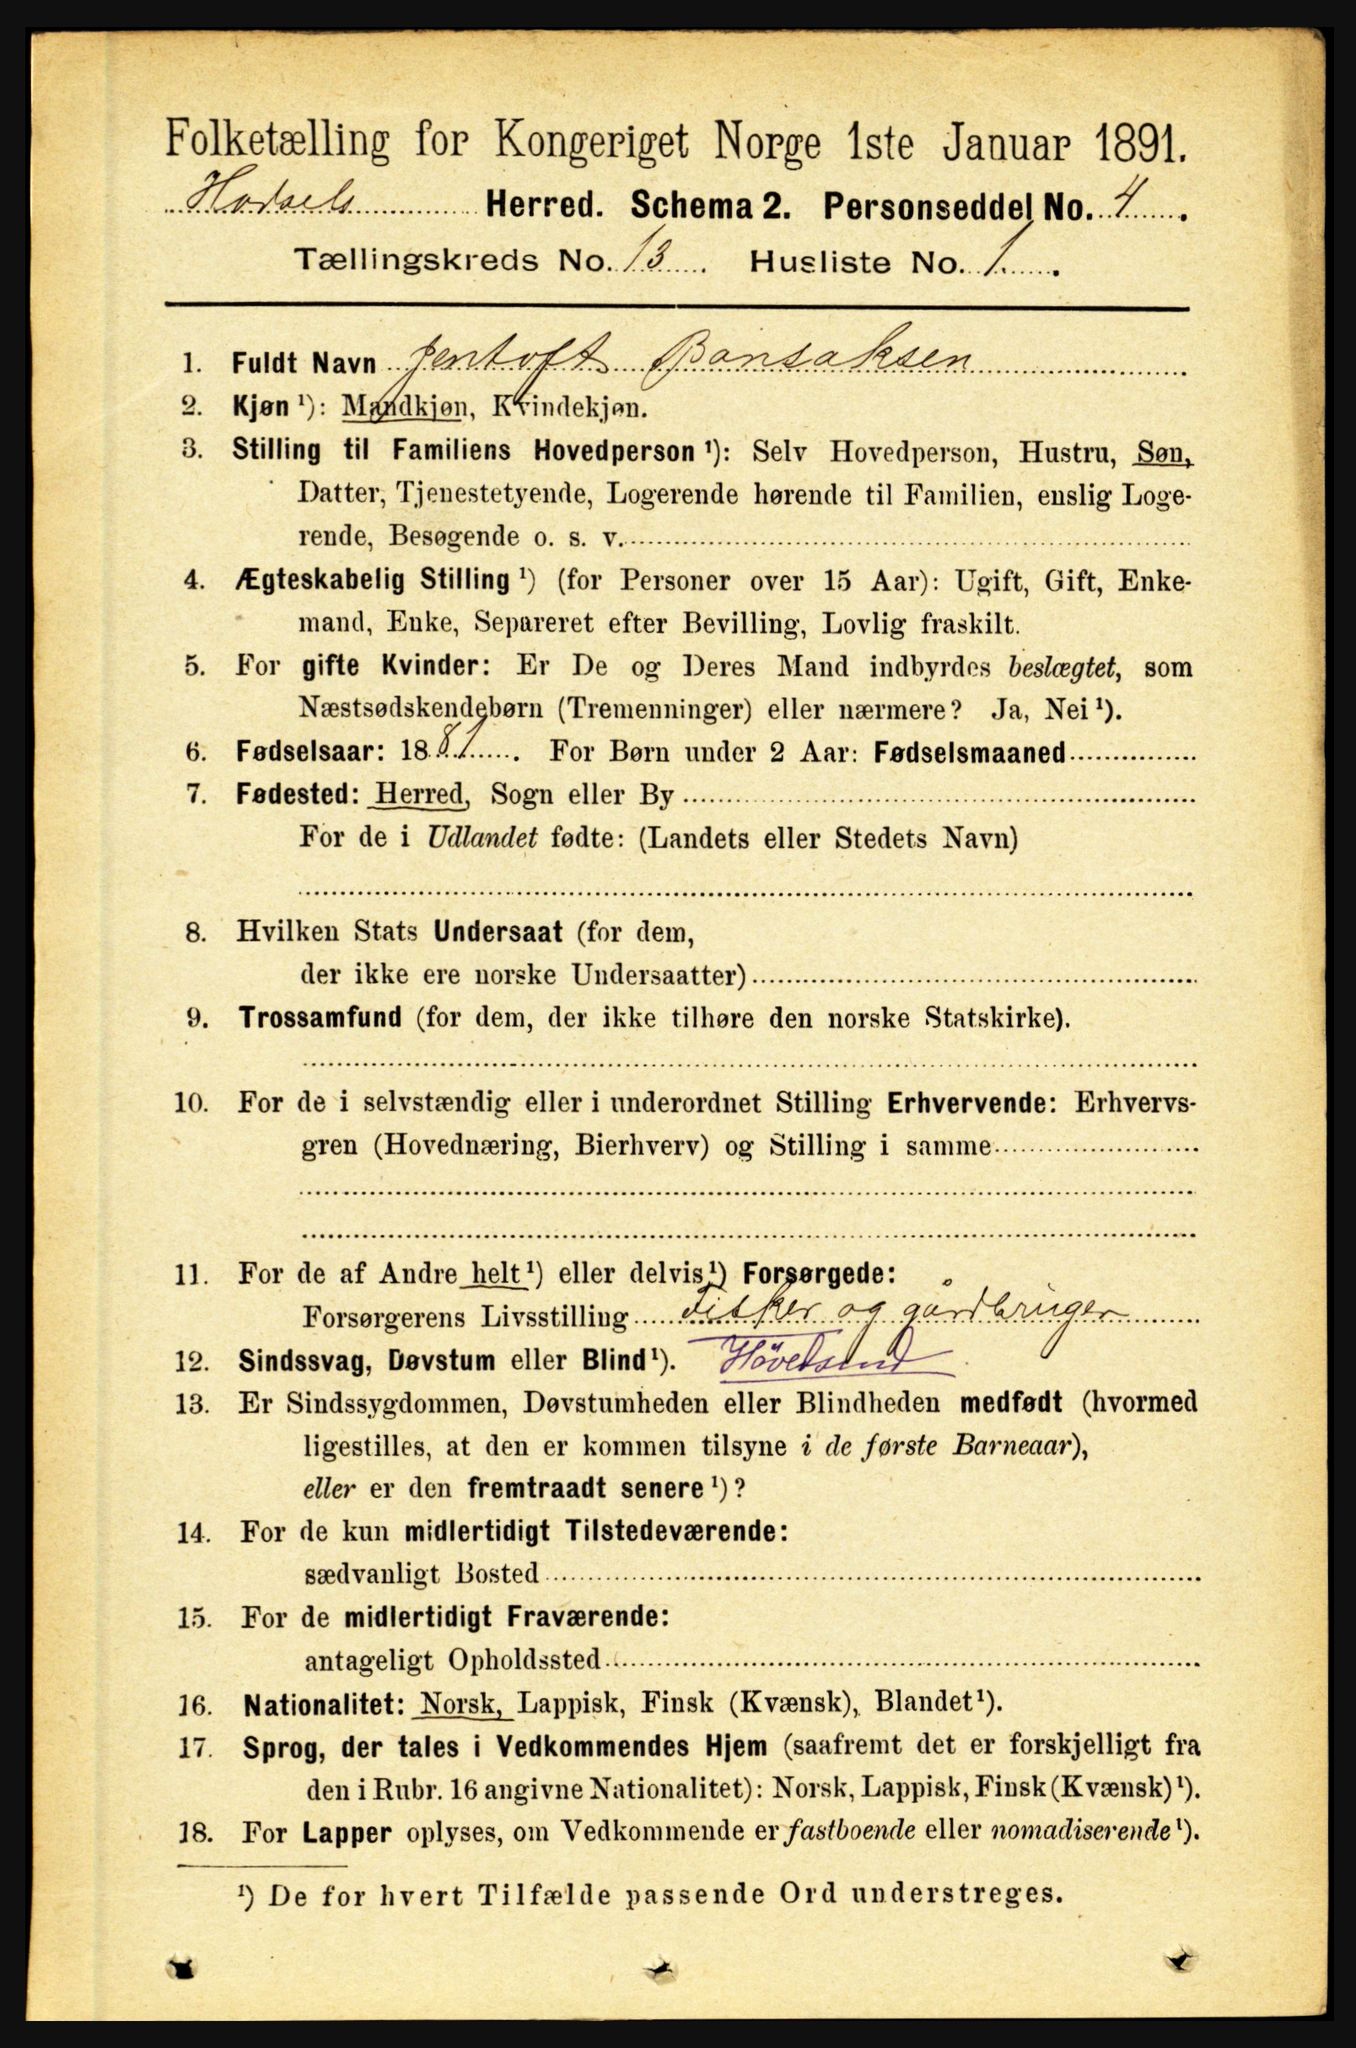 Folketælling for Kongeriget Norge 1ste Januar 1891.
Hadsels Herred. Schema 2. Personseddel No. 4.
Tællingskreds No. 13. Husliste No. 1.
1. Fuldt Navn Jentoft Bonsaksen
2. Kjøn ¹): Mandkjøn, Kvindekjøn.
3. Stilling til Familiens Hovedperson ¹): Selv Hovedperson, Hustru, Søn,
Datter, Tjenestetyende, Logerende hørende til Familien, enslig Loge-
rende, Besøgende o. s. v.
4. Ægteskabelig Stilling ¹) (for Personer over 15 Aar): Ugift, Gift, Enke-
mand, Enke, Separeret efter Bevilling, Lovlig fraskilt.
5. For gifte Kvinder: Er De og Deres Mand indbyrdes beslægtet, som
Næstsødskendebørn (Tremenninger) eller nærmere? Ja, Nei ¹).
6. Fødselsaar: 1881. For Børn under 2 Aar: Fødselsmaaned
7. Fødested: Herred, Sogn eller By
For de i Udlandet fødte: (Landets eller Stedets Navn)
8. Hvilken Stats Undersaat (for dem,
der ikke ere norske Undersaatter)
9. Trossamfund (for dem, der ikke tilhøre den norske Statskirke).
10. For de i selvstændig eller i underordnet Stilling Erhvervende: Erhvervs-
gren (Hovednæring, Bierhverv) og Stilling i samme
11. For de af Andre helt ¹) eller delvis ¹) Forsørgede:
Forsørgerens Livsstilling Fisker og gårdbruger
12. Sindssvag, Døvstum eller Blind ¹).
13. Er Sindssygdommen, Døvstumheden eller Blindheden medfødt (hvormed
ligestilles, at den er kommen tilsyne i de første Barneaar),
eller er den fremtraadt senere ¹)?
14. For de kun midlertidigt Tilstedeværende:
sædvanligt Bosted
15. For de midlertidigt Fraværende:
antageligt Opholdssted
16. Nationalitet: Norsk, Lappisk, Finsk (Kvænsk), Blandet ¹).
17. Sprog, der tales i Vedkommendes Hjem (saafremt det er forskjelligt fra
den i Rubr. 16 angivne Nationalitet): Norsk, Lappisk, Finsk (Kvænsk) ¹).
18. For Lapper oplyses, om Vedkommende er fastboende eller nomadiserende ¹).
¹) De for hvert Tilfælde passende Ord understreges.